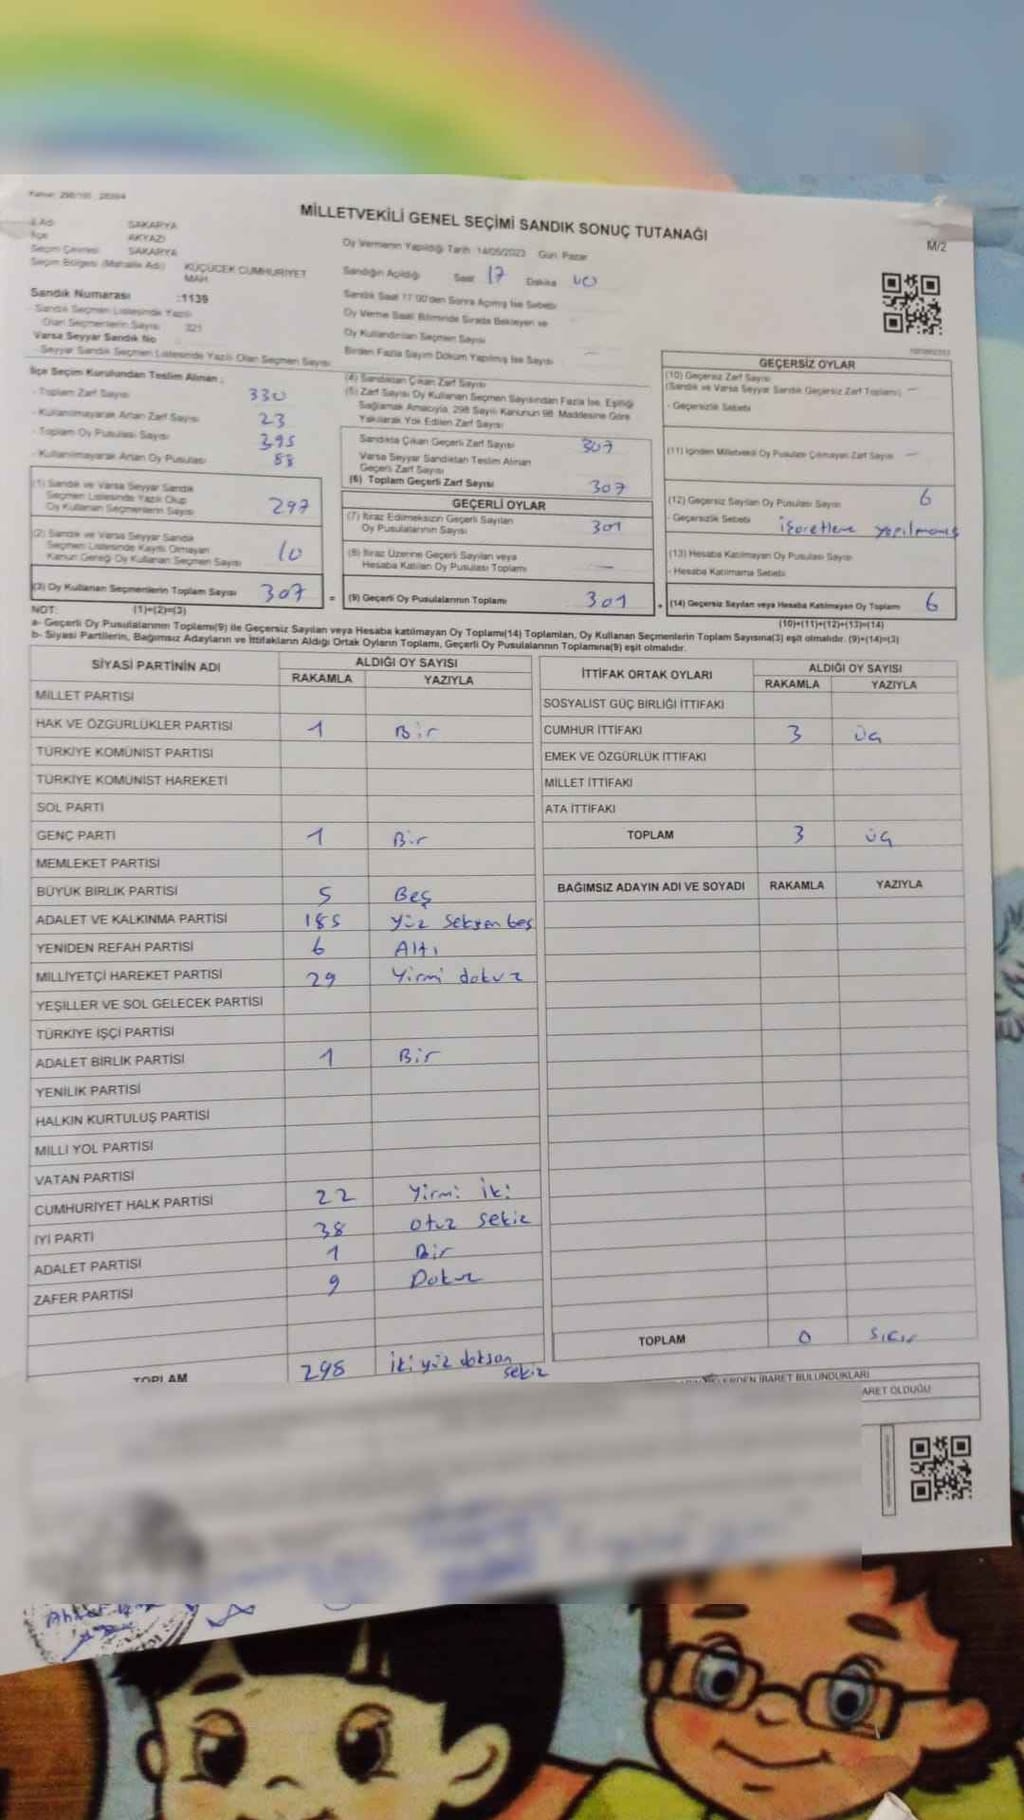 MİLLETVEKİLİ GENEL SEÇİMİ SANDIK SONUÇ TUTANAĞI
M/2
İli Adı SAKARYA
İlçe AKYAZI
Seçim Çevresi SAKARYA
Seçim Bölgesi (Mahalle Adı) KÜÇÜCEK CUMHURİYET MAH
Sandık Numarası :1139
Sandık Seçmen Listesinde Yazılı
Olan Seçmenlerin Sayısı 321
Varsa Seyyar Sandık No
Seyyar Sandık Seçmen Listesinde Yazılı Olan Seçmen Sayısı
Oy Vermenin Yapıldığı Tarih 14/05/2023 Gün Pazar
Sandığın Açıldığı Saat 17 Dakika 40
Sandık Saat 17:00'den Sonra Açılmış İse Sebebi
Oy Verme Saati Bitiminde Sırada Bekleyen ve
Oy Kullandırılan Seçmen Sayısı
Birden Fazla Sayım Döküm Yapılmış İse Sayısı
İlçe Seçim Kurulundan Teslim Alınan :
- Toplam Zarf Sayısı 330
- Kullanılmayarak Artan Zarf Sayısı 23
- Toplam Oy Pusulası Sayısı 395
- Kullanılmayarak Artan Oy Pusulası 88
(1) Sandık ve Varsa Seyyar Sandık
Seçmen Listesinde Yazılı Olup
Oy Kullanan Seçmenlerin Sayısı 297
(2) Sandık ve Varsa Seyyar Sandık
Seçmen Listesinde Kayıtlı Olmayan
Kanun Gereği Oy Kullanan Seçmen Sayısı 10
(3) Oy Kullanan Seçmenlerin Toplam Sayısı 307 =
(1)+(2)=(3)
(4) Sandıktan Çıkan Zarf Sayısı
(5) Zarf Sayısı Oy Kullanan Seçmen Sayısından Fazla İse, Eşitliği
Sağlamak Amacıyla, 298 Sayılı Kanunun 98. Maddesine Göre
Yakılarak Yok Edilen Zarf Sayısı
Sandıkta Çıkan Geçerli Zarf Sayısı 307
Varsa Seyyar Sandıktan Teslim Alınan
Geçerli Zarf Sayısı
(6) Toplam Geçerli Zarf Sayısı 307
GEÇERLİ OYLAR
(7) İtiraz Edilmeksizin Geçerli Sayılan
Oy Pusulalarının Sayısı 301
(8) İtiraz Üzerine Geçerli Sayılan veya
Hesaba Katılan Oy Pusulası Toplamı —
(9) Geçerli Oy Pusulalarının Toplamı 301 +
GEÇERSİZ OYLAR
(10) Geçersiz Zarf Sayısı
(Sandık ve Varsa Seyyar Sandık Geçersiz Zarf Toplamı) —
- Geçersizlik Sebebi
(11) İçinden Milletvekili Oy Pusulası Çıkmayan Zarf Sayısı —
(12) Geçersiz Sayılan Oy Pusulası Sayısı 6
- Geçersizlik Sebebi işaretleme yapılmamış
(13) Hesaba Katılmayan Oy Pusulası Sayısı
- Hesaba Katılmama Sebebi
(14) Geçersiz Sayılan veya Hesaba Katılmayan Oy Toplamı 6
(10)+(11)+(12)+(13)=(14)
NOT:
a- Geçerli Oy Pusulalarının Toplamı(9) ile Geçersiz Sayılan veya Hesaba katılmayan Oy Toplamı(14) Toplamları, Oy Kullanan Seçmenlerin Toplam Sayısına(3) eşit olmalıdır. (9)+(14)=(3)
b- Siyasi Partilerin, Bağımsız Adayların ve İttifakların Aldığı Ortak Oyların Toplamı, Geçerli Oy Pusulalarının Toplamına(9) eşit olmalıdır.
SİYASİ PARTİNİN ADI ALDIĞI OY SAYISI
RAKAMLA YAZIYLA
MİLLET PARTİSİ
HAK VE ÖZGÜRLÜKLER PARTİSİ 1 Bir
TÜRKİYE KOMÜNİST PARTİSİ
TÜRKİYE KOMÜNİST HAREKETİ
SOL PARTİ
GENÇ PARTİ 1 Bir
MEMLEKET PARTİSİ
BÜYÜK BİRLİK PARTİSİ 5 Beş
ADALET VE KALKINMA PARTİSİ 185 Yüz seksen beş
YENİDEN REFAH PARTİSİ 6 Altı
MİLLİYETÇİ HAREKET PARTİSİ 29 Yirmi dokuz
YEŞİLLER VE SOL GELECEK PARTİSİ
TÜRKİYE İŞÇİ PARTİSİ
ADALET BİRLİK PARTİSİ 1 Bir
YENİLİK PARTİSİ
HALKIN KURTULUŞ PARTİSİ
MİLLİ YOL PARTİSİ
VATAN PARTİSİ
CUMHURİYET HALK PARTİSİ 22 Yirmi iki
İYİ PARTİ 38 otuz sekiz
ADALET PARTİSİ 1 Bir
ZAFER PARTİSİ 9 Dokuz
TOPLAM 298 iki yüz doksan sekiz
İTTİFAK ORTAK OYLARI ALDIĞI OY SAYISI
RAKAMLA YAZIYLA
SOSYALİST GÜÇ BİRLİĞİ İTTİFAKI
CUMHUR İTTİFAKI 3 üç
EMEK VE ÖZGÜRLÜK İTTİFAKI
MİLLET İTTİFAKI
ATA İTTİFAKI
TOPLAM 3 üç
BAĞIMSIZ ADAYIN ADI VE SOYADI RAKAMLA YAZIYLA
TOPLAM 0 sıfır
İBARET BULUNDUKLARI
OLDUĞU